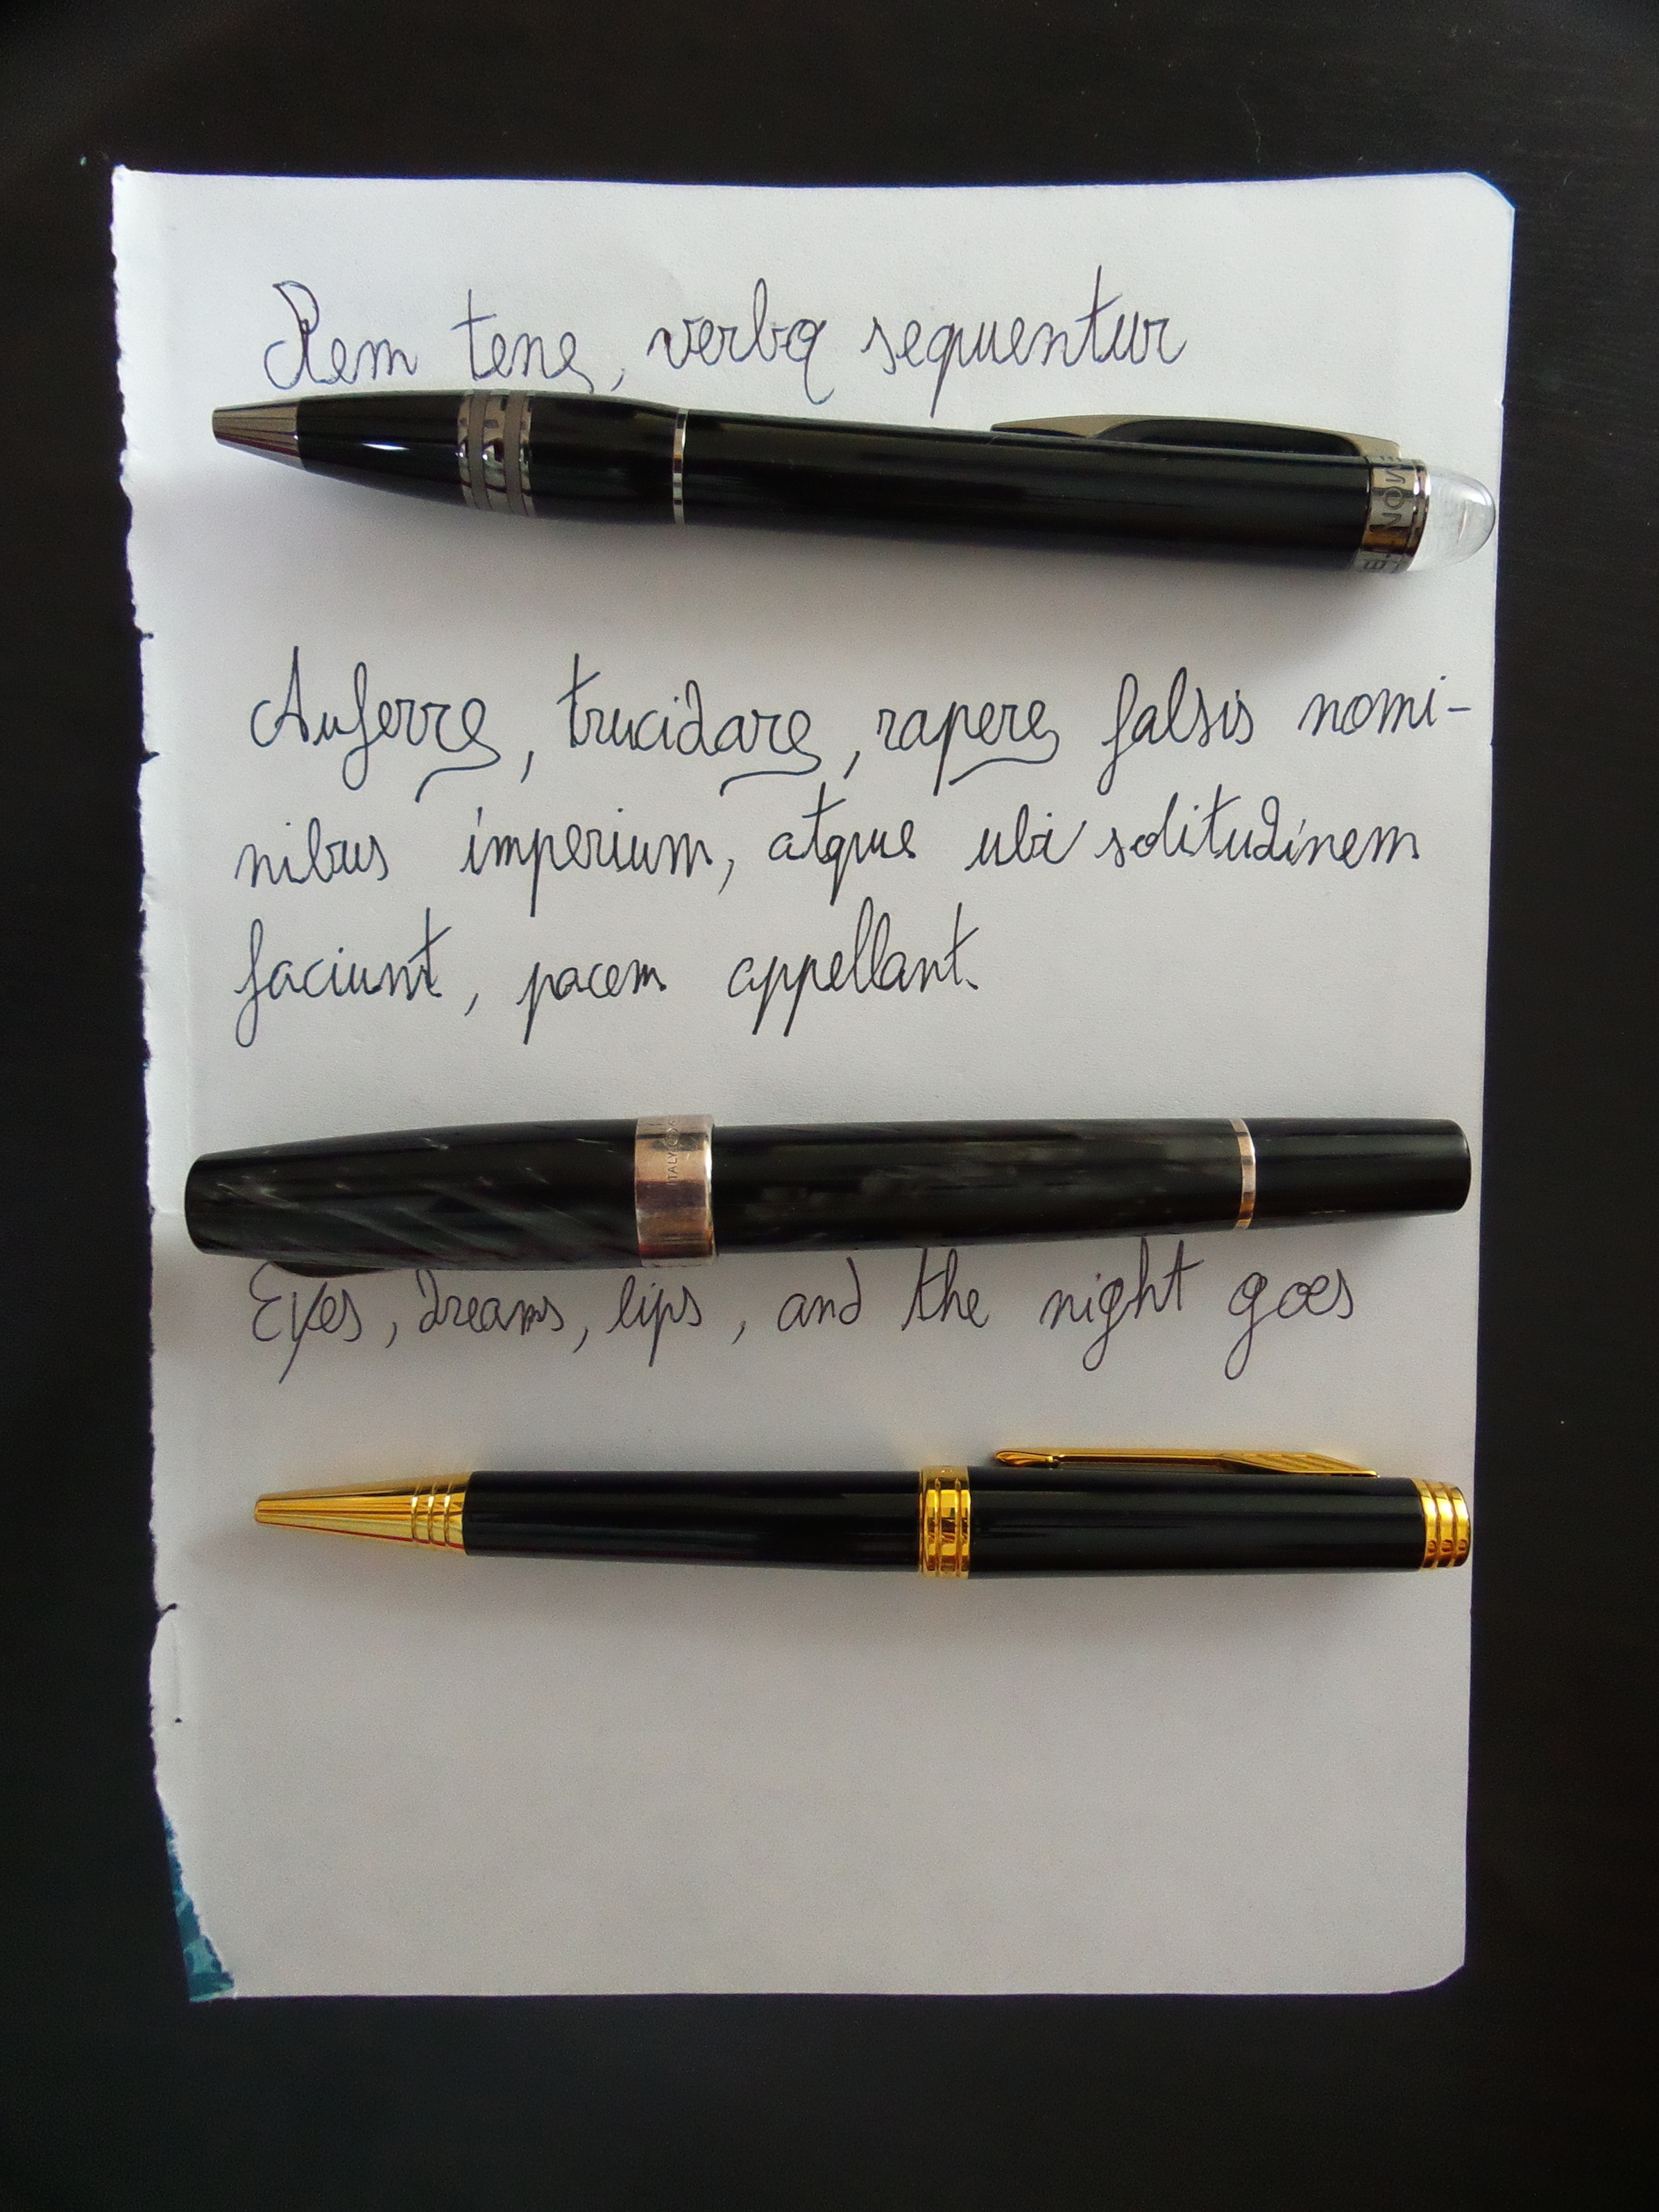 Rem tene, verba sequentur
Auferre, trucidare, rapere falsis nomi-
nibus imperium, atque ubi solitudinem
faciunt, pacem appellant.
ITALY
Eyes, dreams, lips, and the night goes